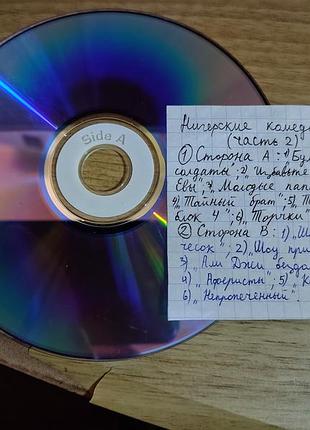 Side A
Нигерские комед
(часть 2)
① Сторона А: 1) Бул
солдаты"; 2) „Избавьте
Евы"; 3) „Молодые пап
4) „Тайный брат"; 5) „
блок 4"; 6) „Торчки"
② Сторона В: 1) „Ш
чесок"; 2) „Шоу при
3) „Али Джи, безда
4) „Аферисты"; 5) „К
6) „Непропеченный"